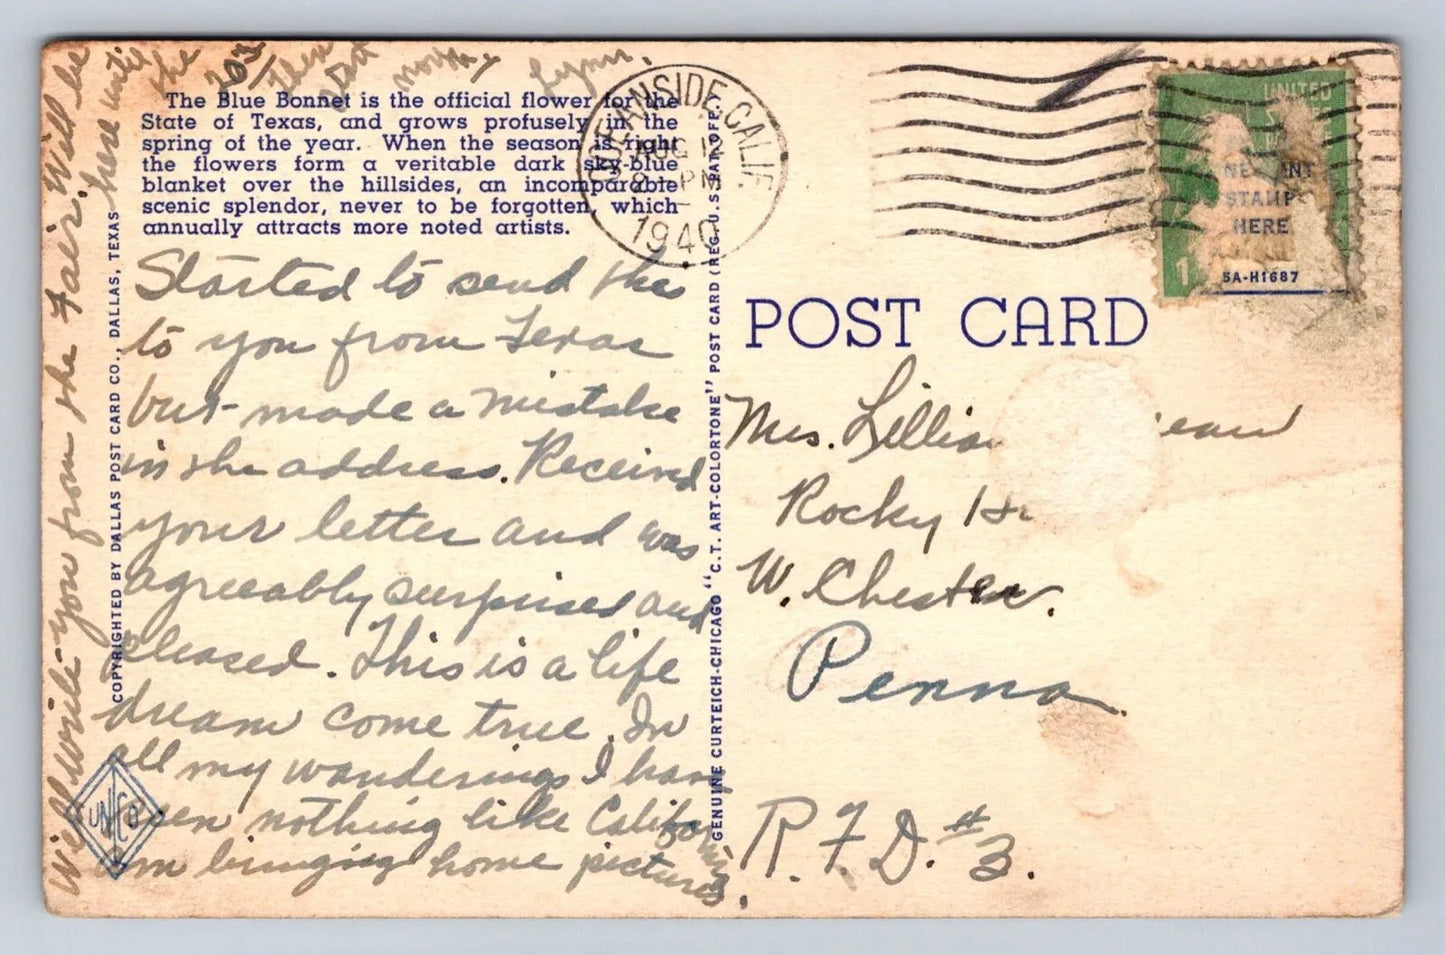 The Blue Bonnet is the official flower for the
State of Texas, and grows profusely in the
spring of the year. When the season is right
the flowers form a veritable dark sky-blue
blanket over the hillsides, an incomparable
scenic splendor, never to be forgotten, which
annually attracts more noted artists.
Started to send this
to you from Texas
but made a mistake
in the address. Received
your letter and was
agreeably surprised and
pleased. This is a life
dream come true. In
all my wanderings I have
seen nothing like California
am bringing home pictures.
Will write you from the Fair. Will be
here until
the
20th
then
north,
Lynn.
COPYRIGHTED BY DALLAS POST CARD CO., DALLAS, TEXAS
GENUINE CURTEICH-CHICAGO "C.T. ART-COLORTONE" POST CARD (REG. U.S. PAT. OFF.)
OCEANSIDE, CALIF.
AUG 12
PM
1940
UNITED
1
STAMP
HERE
5A-H1687
POST CARD
Mrs.
Rocky
W. Chester.
Penna.
R.F.D. #3.